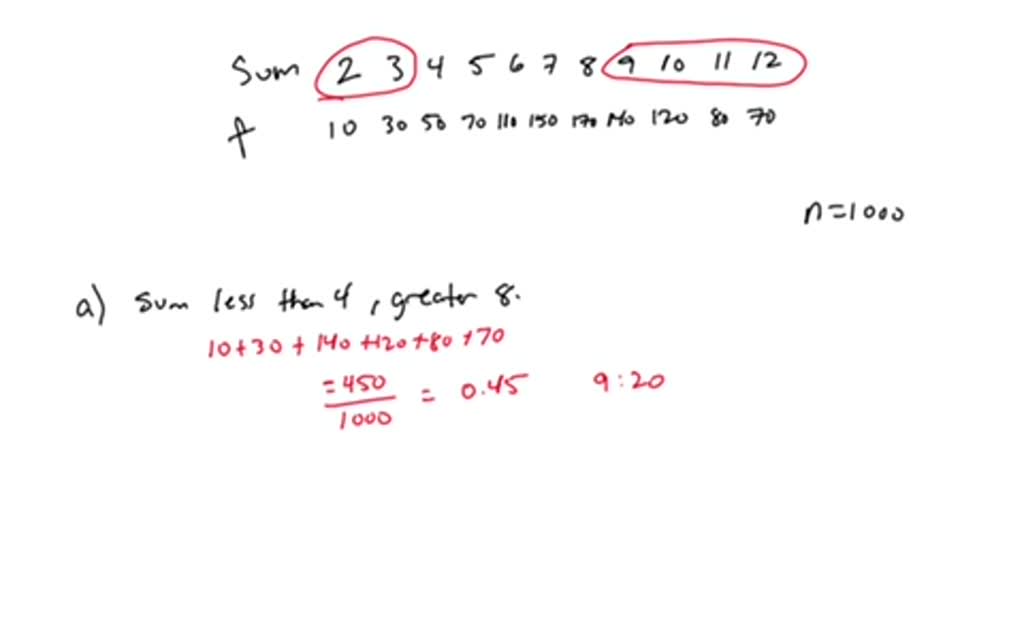 Sum 2 3 4 5 6 7 8 9 10 11 12
f 10 30 50 70 110 150 170 140 120 80 70
n=1000
a) Sum less than 4, greater 8.
10+30+140+120+80+70
=450/1000 = 0.45 9:20